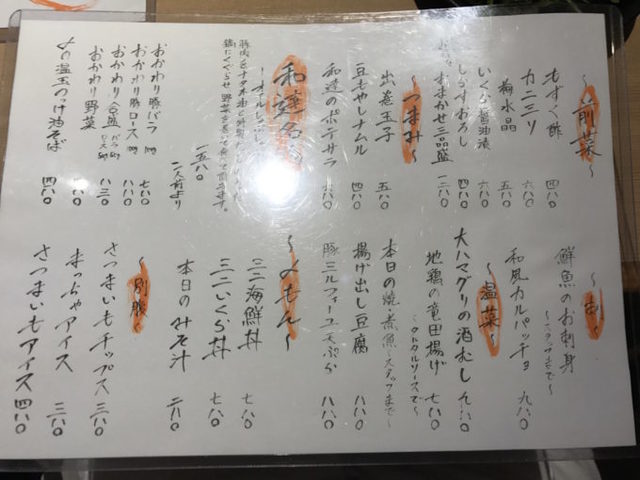 ～前菜～
もずく酢 四八〇
カニミソ 六八〇
梅水晶 五八〇
いくら醤油漬 六八〇
しらすおろし 四八〇
おまかせ三品盛 一二八〇
～つまみ～
出し巻玉子 五八〇
豆もやしナムル 四八〇
和達のポテサラ
和達名
一五八〇
二人前より
おかわり豚バラ 七八〇
おかわり豚ロース 八八〇
おかわり合盛 バラ ロース 八三〇
おかわり野菜
〆の温玉のっけ油そば 四八〇
～刺～
鮮魚のお刺身 ～スタッフまで～
和風カルパッチョ 九八〇
～温菜～
大ハマグリの酒むし 九八〇
地鶏の竜田揚げ 七八〇
～タルタルソースで～
本日の焼・煮魚～スタッフまで～
揚げ出し豆腐 八八〇
豚ミルフィーユ天ぷら 八八〇
～〆もん～
ミニ海鮮丼 七八〇
ミニいくら丼 七八〇
本日のみそ汁 二八〇
～別腹～
さつまいもチップス 三八〇
まっちゃアイス 三八〇
さつまいもアイス 四八〇